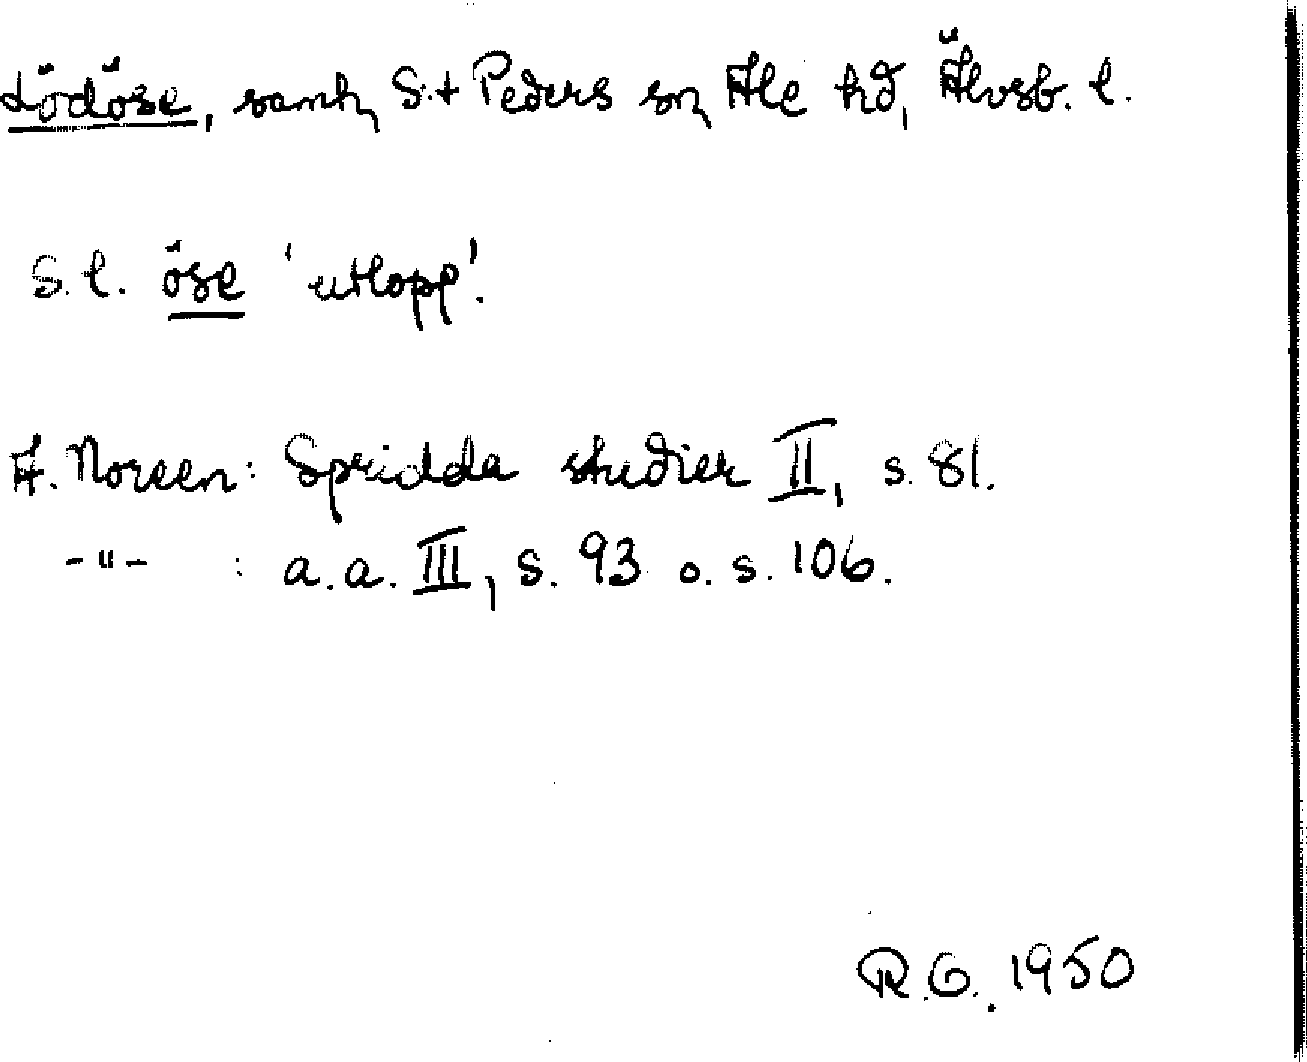 Lödöse, samh, S:t Peders sn, Ale hd, Älvsb. l.
S.l. öse 'utlopp'.
A. Noreen: Spridda studier II, s. 81.
-"- : a.a. III, s. 93 o. s. 106.
R.G. 1950